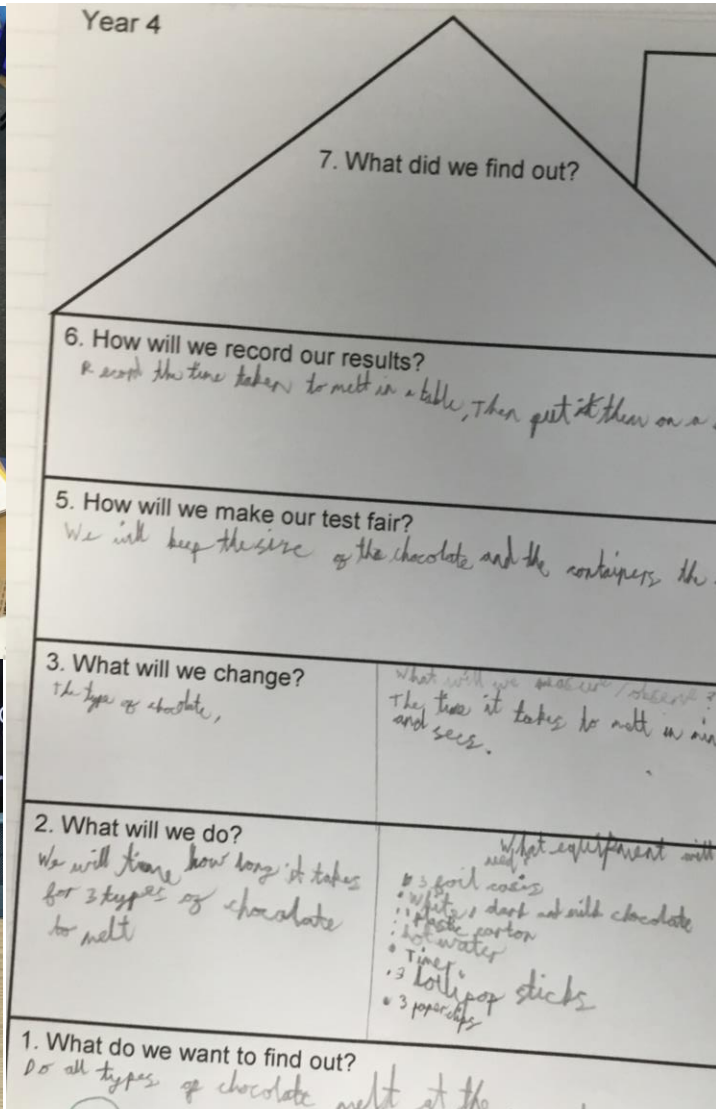 Year 4
7. What did we find out?
6. How will we record our results?
Record the time taken to melt in a table, Then put it them on a
5. How will we make our test fair?
We will keep the size of the chocolate and the containers the
3. What will we change?
The type of chocolate,
What will we measure / observe?
The time it takes to melt in min
and secs.
2. What will we do?
We will time how long it takes
for 3 types of chocolate
to melt
What equifment will
need
3 foil
• White, dark and milk chocolate
• plastic carton
• hot water
• Timer
• 3 lollipop sticks
• 3 paperclips
1. What do we want to find out?
Do all types of chocolate melt at the